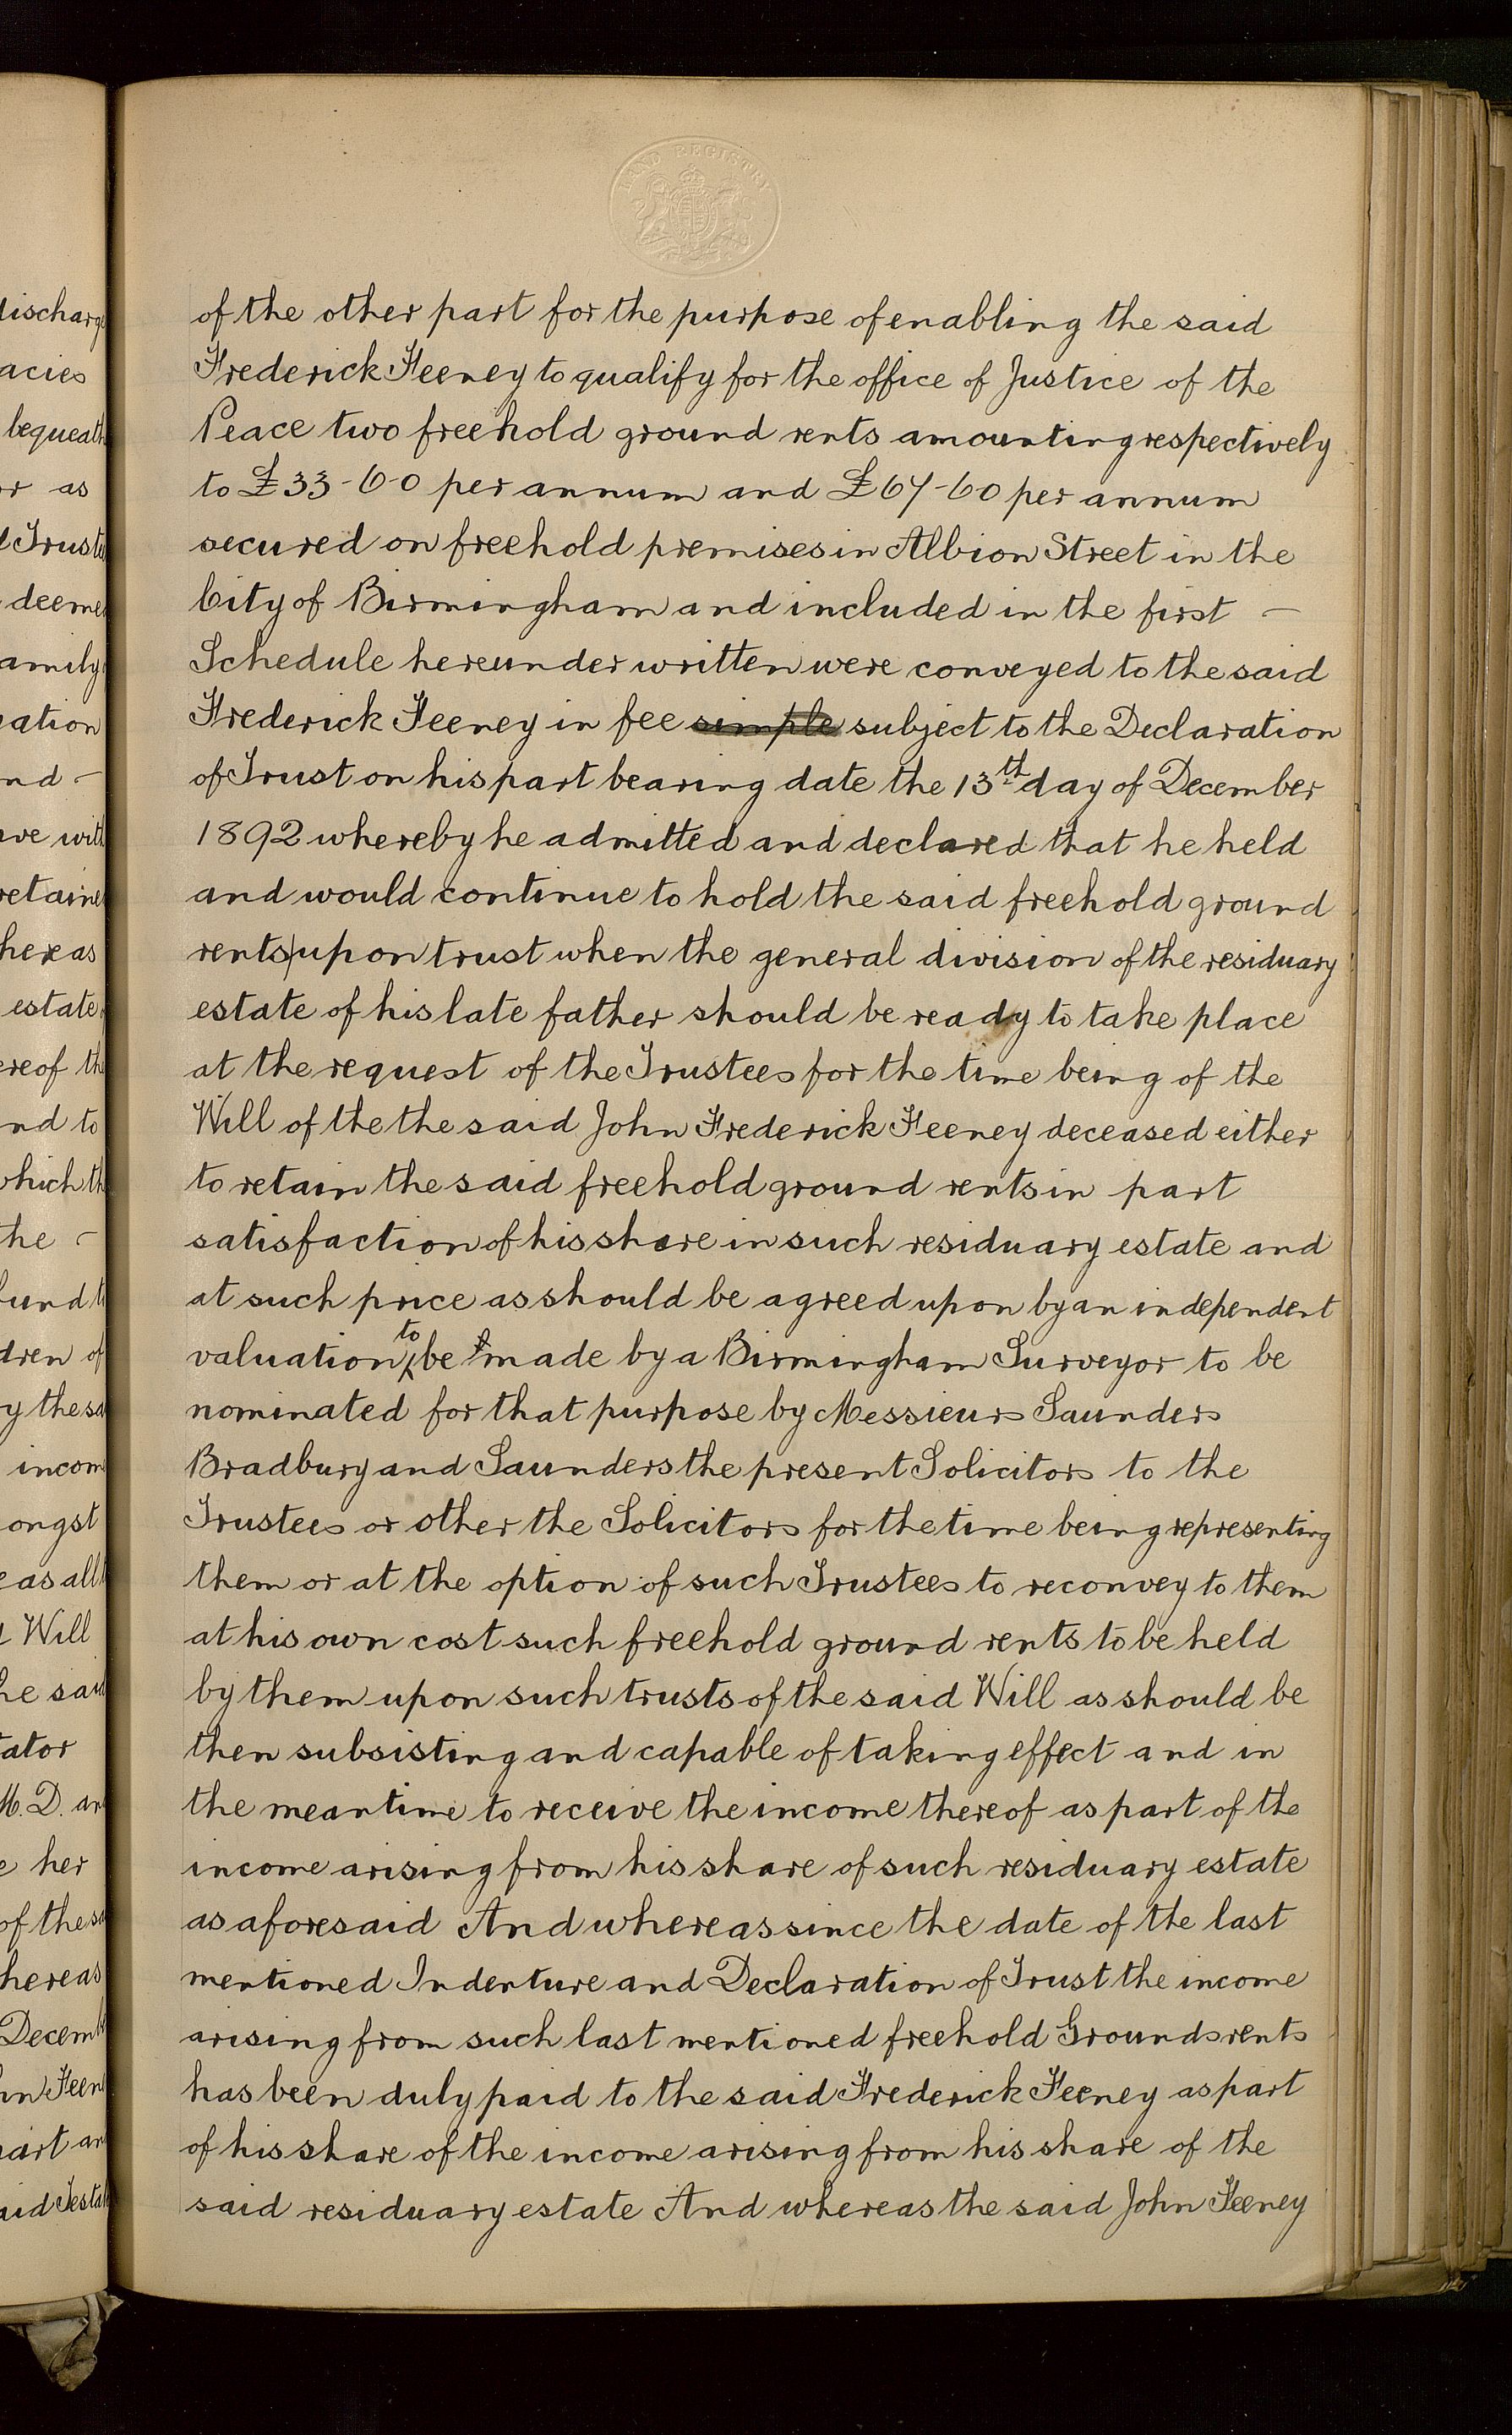 LAND REGISTRY
of the other part for the purpose of enabling the said
Frederick Feeney to qualify for the office of Justice of the
Peace two freehold ground rents amounting respectively
to £33-6-0 per annum and £67-6-0 per annum
secured on freehold premises in Albion Street in the
City of Birmingham and included in the first —
Schedule hereunder written were conveyed to the said
Frederick Feeney in fee simple subject to the Declaration
of Trust on his part bearing date the 13th day of December
1892 whereby he admitted and declared that he held
and would continue to hold the said freehold ground
rents upon trust when the general division of the residuary
estate of his late father should be ready to take place
at the request of the Trustees for the time being of the
Will of the the said John Frederick Feeney deceased either
to retain the said freehold ground rents in part
satisfaction of his share in such residuary estate and
at such price as should be agreed upon by an independent
valuation to be made by a Birmingham Surveyor to be
nominated for that purpose by Messieurs Saunders
Bradbury and Saunders the present Solicitors to the
Trustees or other the Solicitors for the time being representing
them or at the option of such Trustees to reconvey to them
at his own cost such freehold ground rents to be held
by them upon such trusts of the said Will as should be
then subsisting and capable of taking effect and in
the meantime to receive the income thereof as part of the
income arising from his share of such residuary estate
as aforesaid And whereas since the date of the last
mentioned Indenture and Declaration of Trust the income
arising from such last mentioned freehold Grounds rents
has been duly paid to the said Frederick Feeney as part
of his share of the income arising from his share of the
said residuary estate And whereas the said John Feeney